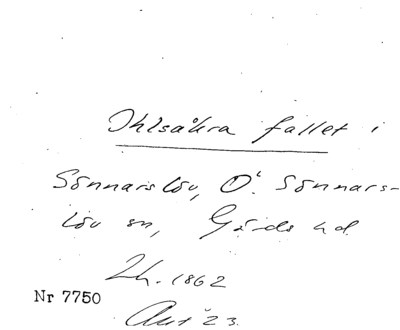 Ihlsåkra fallet i
Sönnarslöv, Ö. Sönnars-
löv sn, Gärds hd.
Lh. 1862
Nr 7750
Akt 23.